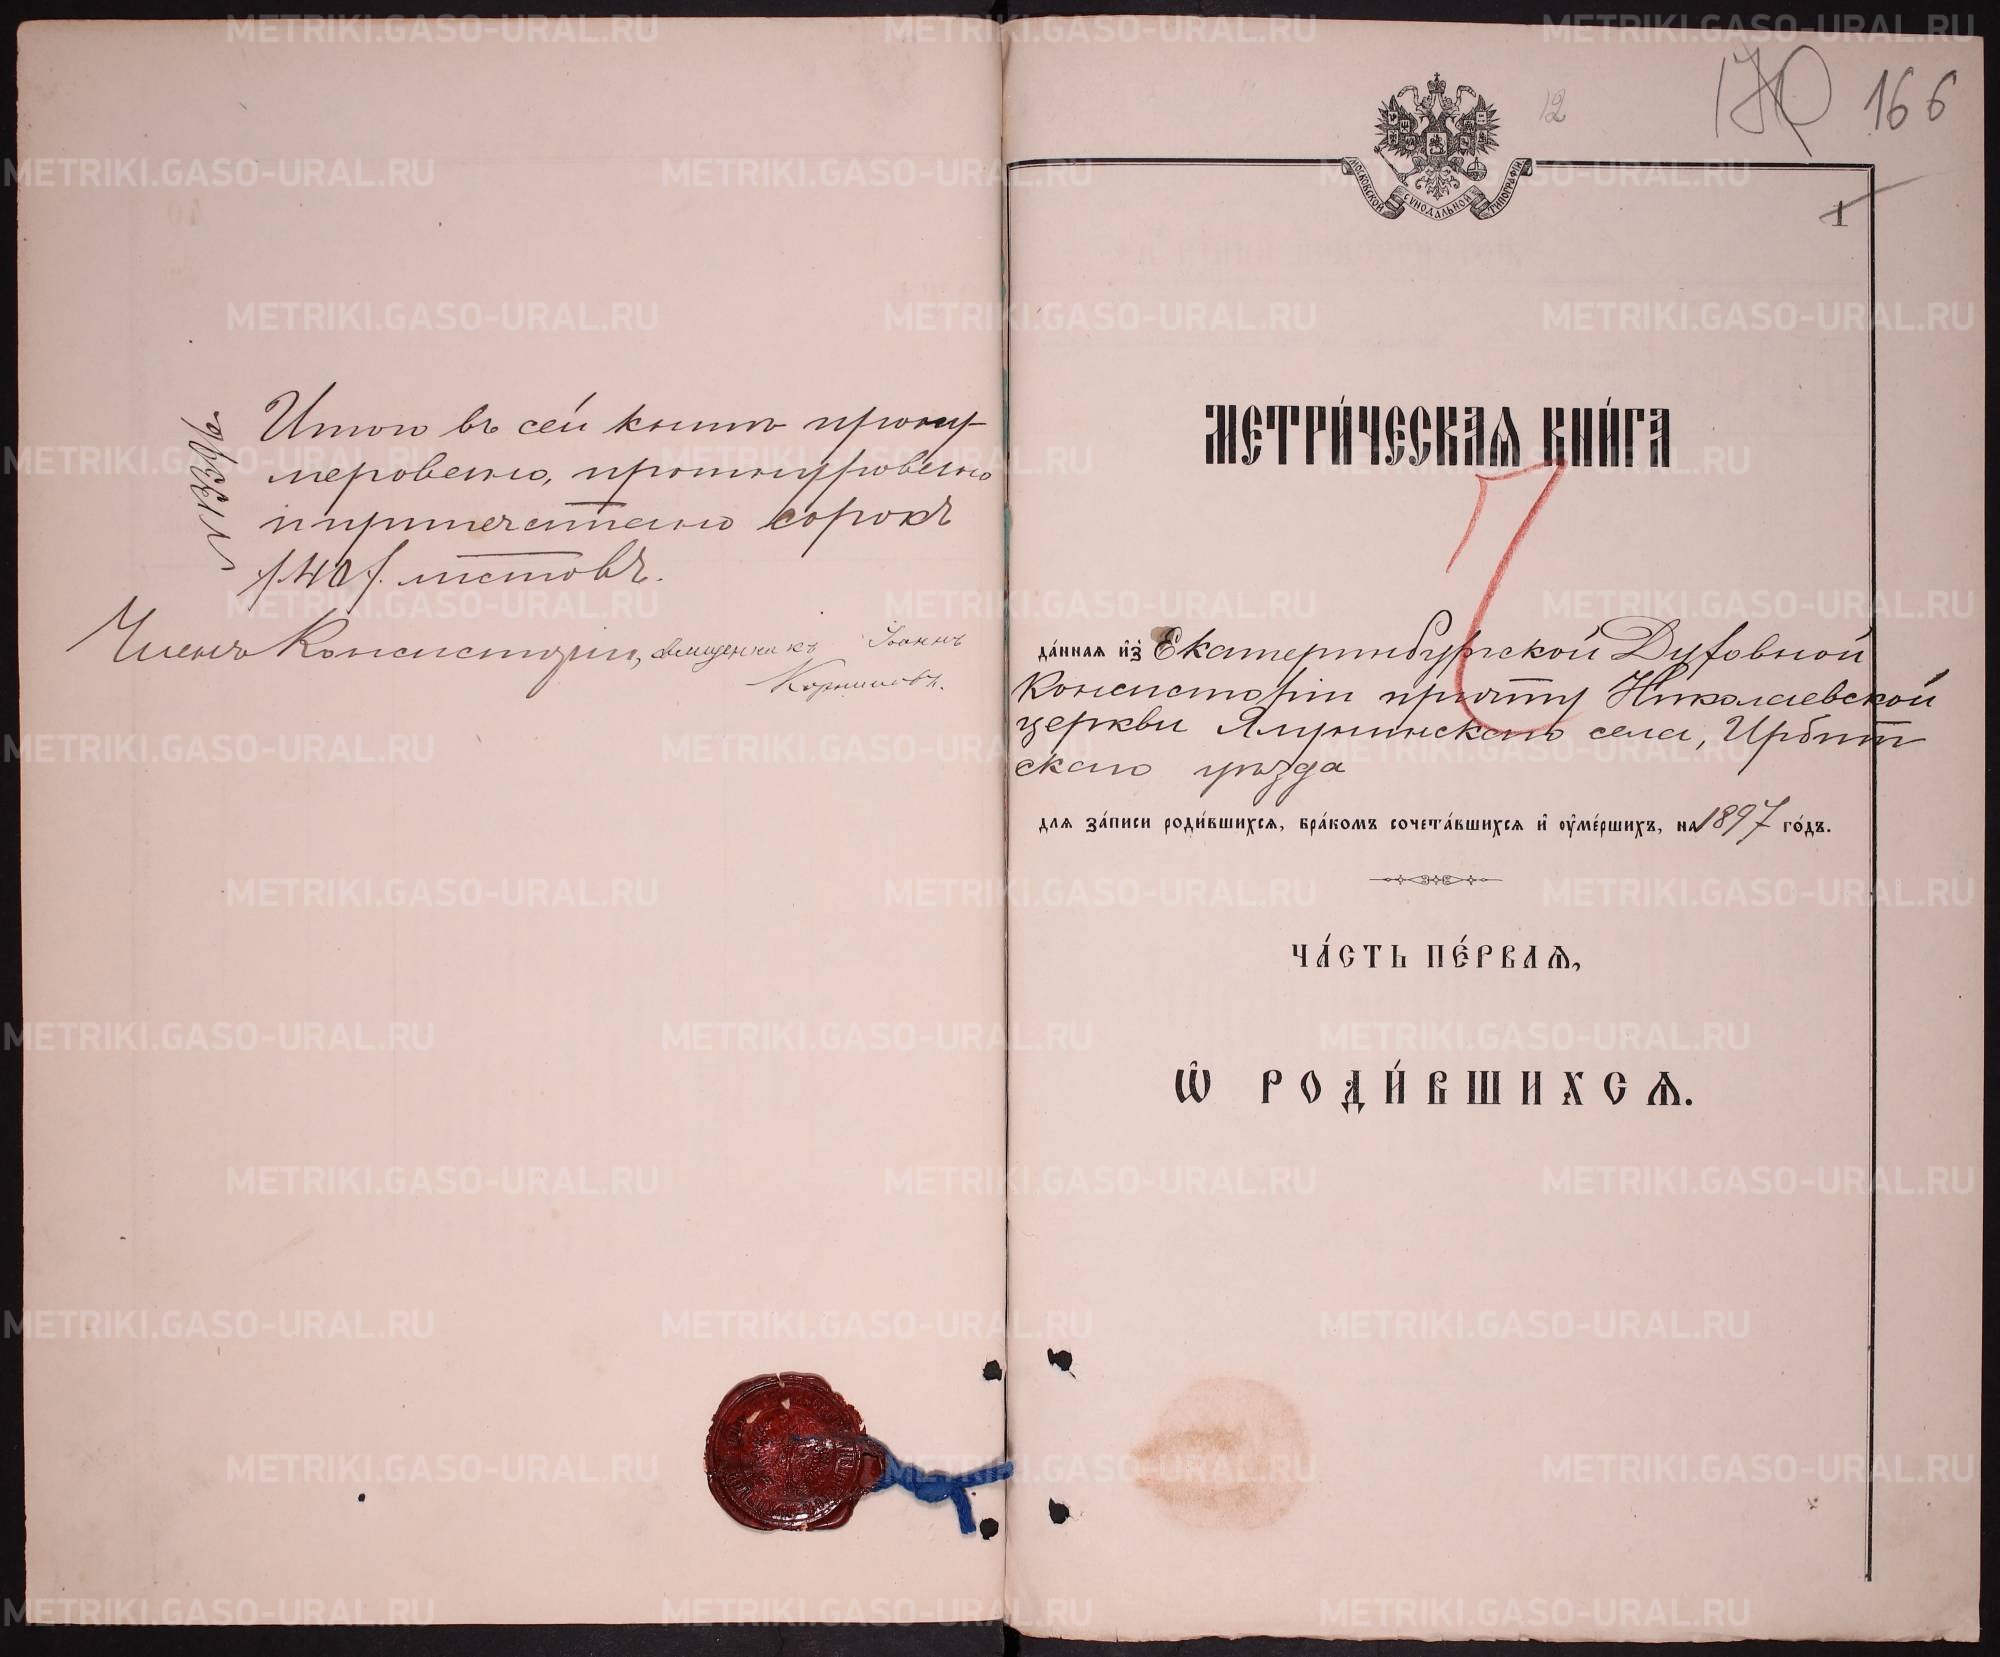 Итого въ сей книгѣ прону-
меровано, прошнуровано
и припечатано сорокъ
/40/ листовъ.
Членъ Консисторіи, священникъ Іоаннъ
12
170 166
МОСКОВСКОЙ СѴНОДАЛЬНОЙ ТИПОГРАФІИ
1
МЕТРИ́ЧЕСКАѦ КНИ́ГА
да́ннаѧ и҆з̾ Екатеринбургской Духовной
Консисторіи причту Николаевской
церкви Ялунинскаго села, Ирбит
скаго уѣзда
длѧ за́писи роди́вшихсѧ, бра́комъ сочета́вшихсѧ и҆ ᲂу҆ме́ршихъ, на 1897 го́дъ.
ЧА́СТЬ ПЕ́РВАѦ,
Ѽ РОДИ́ВШИХСѦ.
METRIKI.GASO-URAL.RU